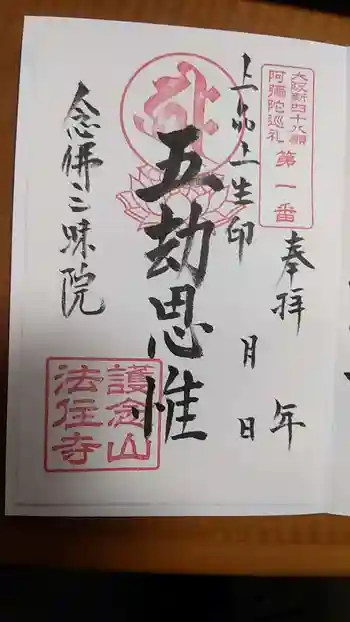 大阪新四十八願
阿彌陀巡礼
第一番
奉拝
年
月
日
上品上生印
五劫思惟
念佛三昧院
護念山
法住寺